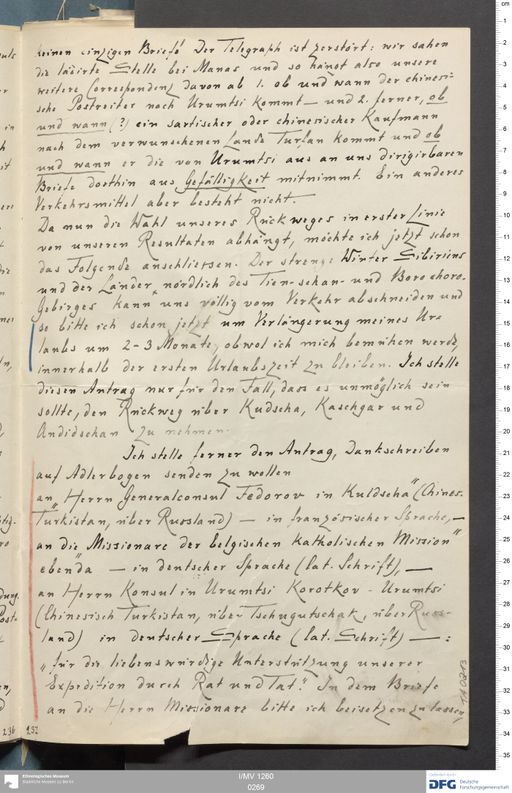 keinen einzigen Brief! Der Telegraph ist zerstört: wir sahen
die lädirte Stelle bei Manas und so hängt also unsere
weitere Correspondenz davon ab 1. ob und wann der chinesi-
sche Postreiter nach Urumtsi kommt — und 2. ferner, ob
und wann (?) ein sartischer oder chinesischer Kaufmann
nach dem verwunschenen Lande Turfan kommt und ob
und wann er die von Urumtsi aus an uns dirigirbaren
Briefe dorthin aus Gefälligkeit mitnimmt. Ein anderes
Verkehrsmittel aber besteht nicht.
Da nun die Wahl unseres Rückweges in erster Linie
von unseren Resultaten abhängt, möchte ich jetzt schon
das Folgende anschliessen. Der strenge Winter Sibiriens
und der Länder nördlich des Tien-schan- und Borochoro-
Gebirges kann uns völlig vom Verkehr abschneiden und
so bitte ich schon jetzt um Verlängerung meines Ur-
laubs um 2-3 Monate, obwol ich mich bemühen werde,
innerhalb der ersten Urlaubszeit zu bleiben. Ich stelle
diesen Antrag nur für den Fall, dass es unmöglich sein
sollte, den Rückweg über Kudscha, Kaschgar und
Andidschan zu nehmen.
Ich stelle ferner den Antrag, Dankschreiben
auf Adlerbogen senden zu wollen
an "Herrn Generalconsul Fedorov in Kuldscha" (Chines.
Turkistan, über Russland) — in französischer Sprache, —
an die Missionare der belgischen katholischen Mission"
ebenda — in deutscher Sprache (lat. Schrift), —
an Herrn Konsul in Urumtsi Korotkov - Urumtsi
(Chinesisch Turkistan, über Tschugutschak, über Russ-
land) in deutscher Sprache (lat. Schrift) — :
"für die liebenswürdige Unterstützung unserer
Expedition durch Rat und Tat." In dem Briefe
an die Herrn Missionare bitte ich beisetzen zu lassen,
236
232
I/MV 1260
0269
Ethnologisches Museum
Staatliche Museen zu Berlin
DFG
Deutsche
Forschungsgemeinschaft